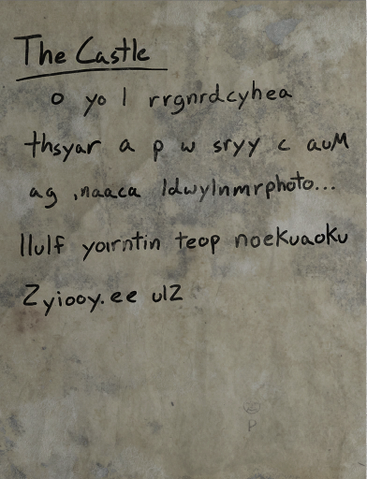 The Castle
o yo l rrgnrdcyhea
thsyar a p w sryy c auM
ag ,naaca ldwylnmrphoto...
llulf yoırntin teop noekuaoku
Zyiooy.ee ulZ